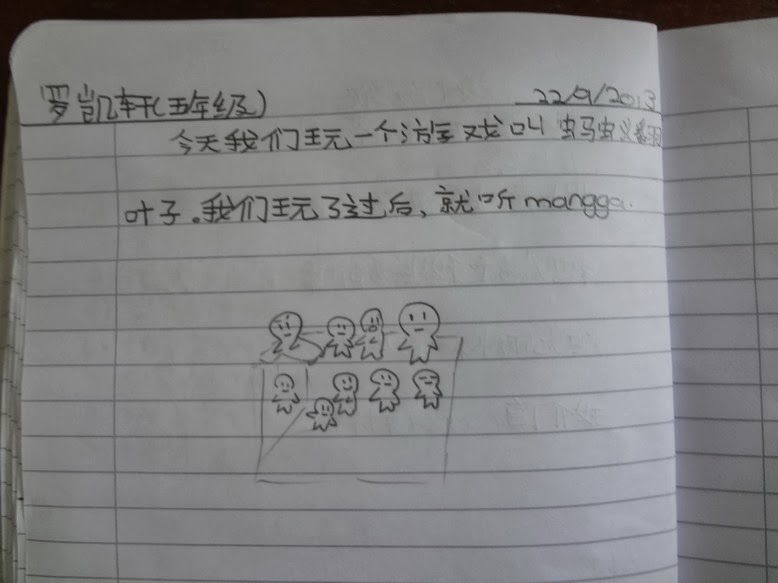 罗凯轩(五年级) 22/9/2013
今天我们玩一个游戏叫蚂蚁翻
叶子。我们玩了过后、就听mangga.